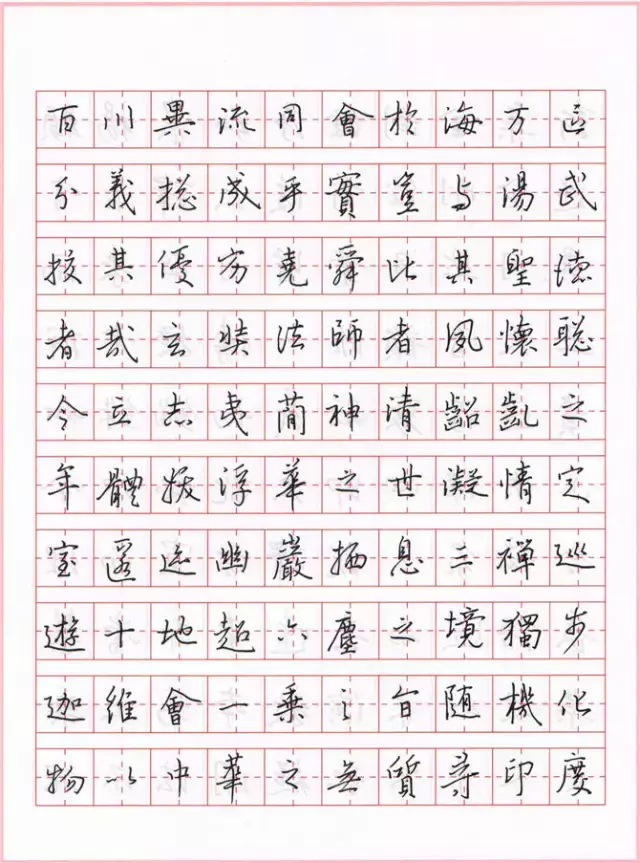 百川異流同會於海方区
分義捴成乎實豈与湯武
挍其優劣堯舜比其聖德
者哉玄奘法師者夙懷聡
令立志夷蕳神清齠齓之
年體拔浮華之世凝情定
室匿迹幽巖栖息三禪巡
遊十地超六塵之境獨步
迦維會一乗之旨随機化
物以中華之无質尋印度